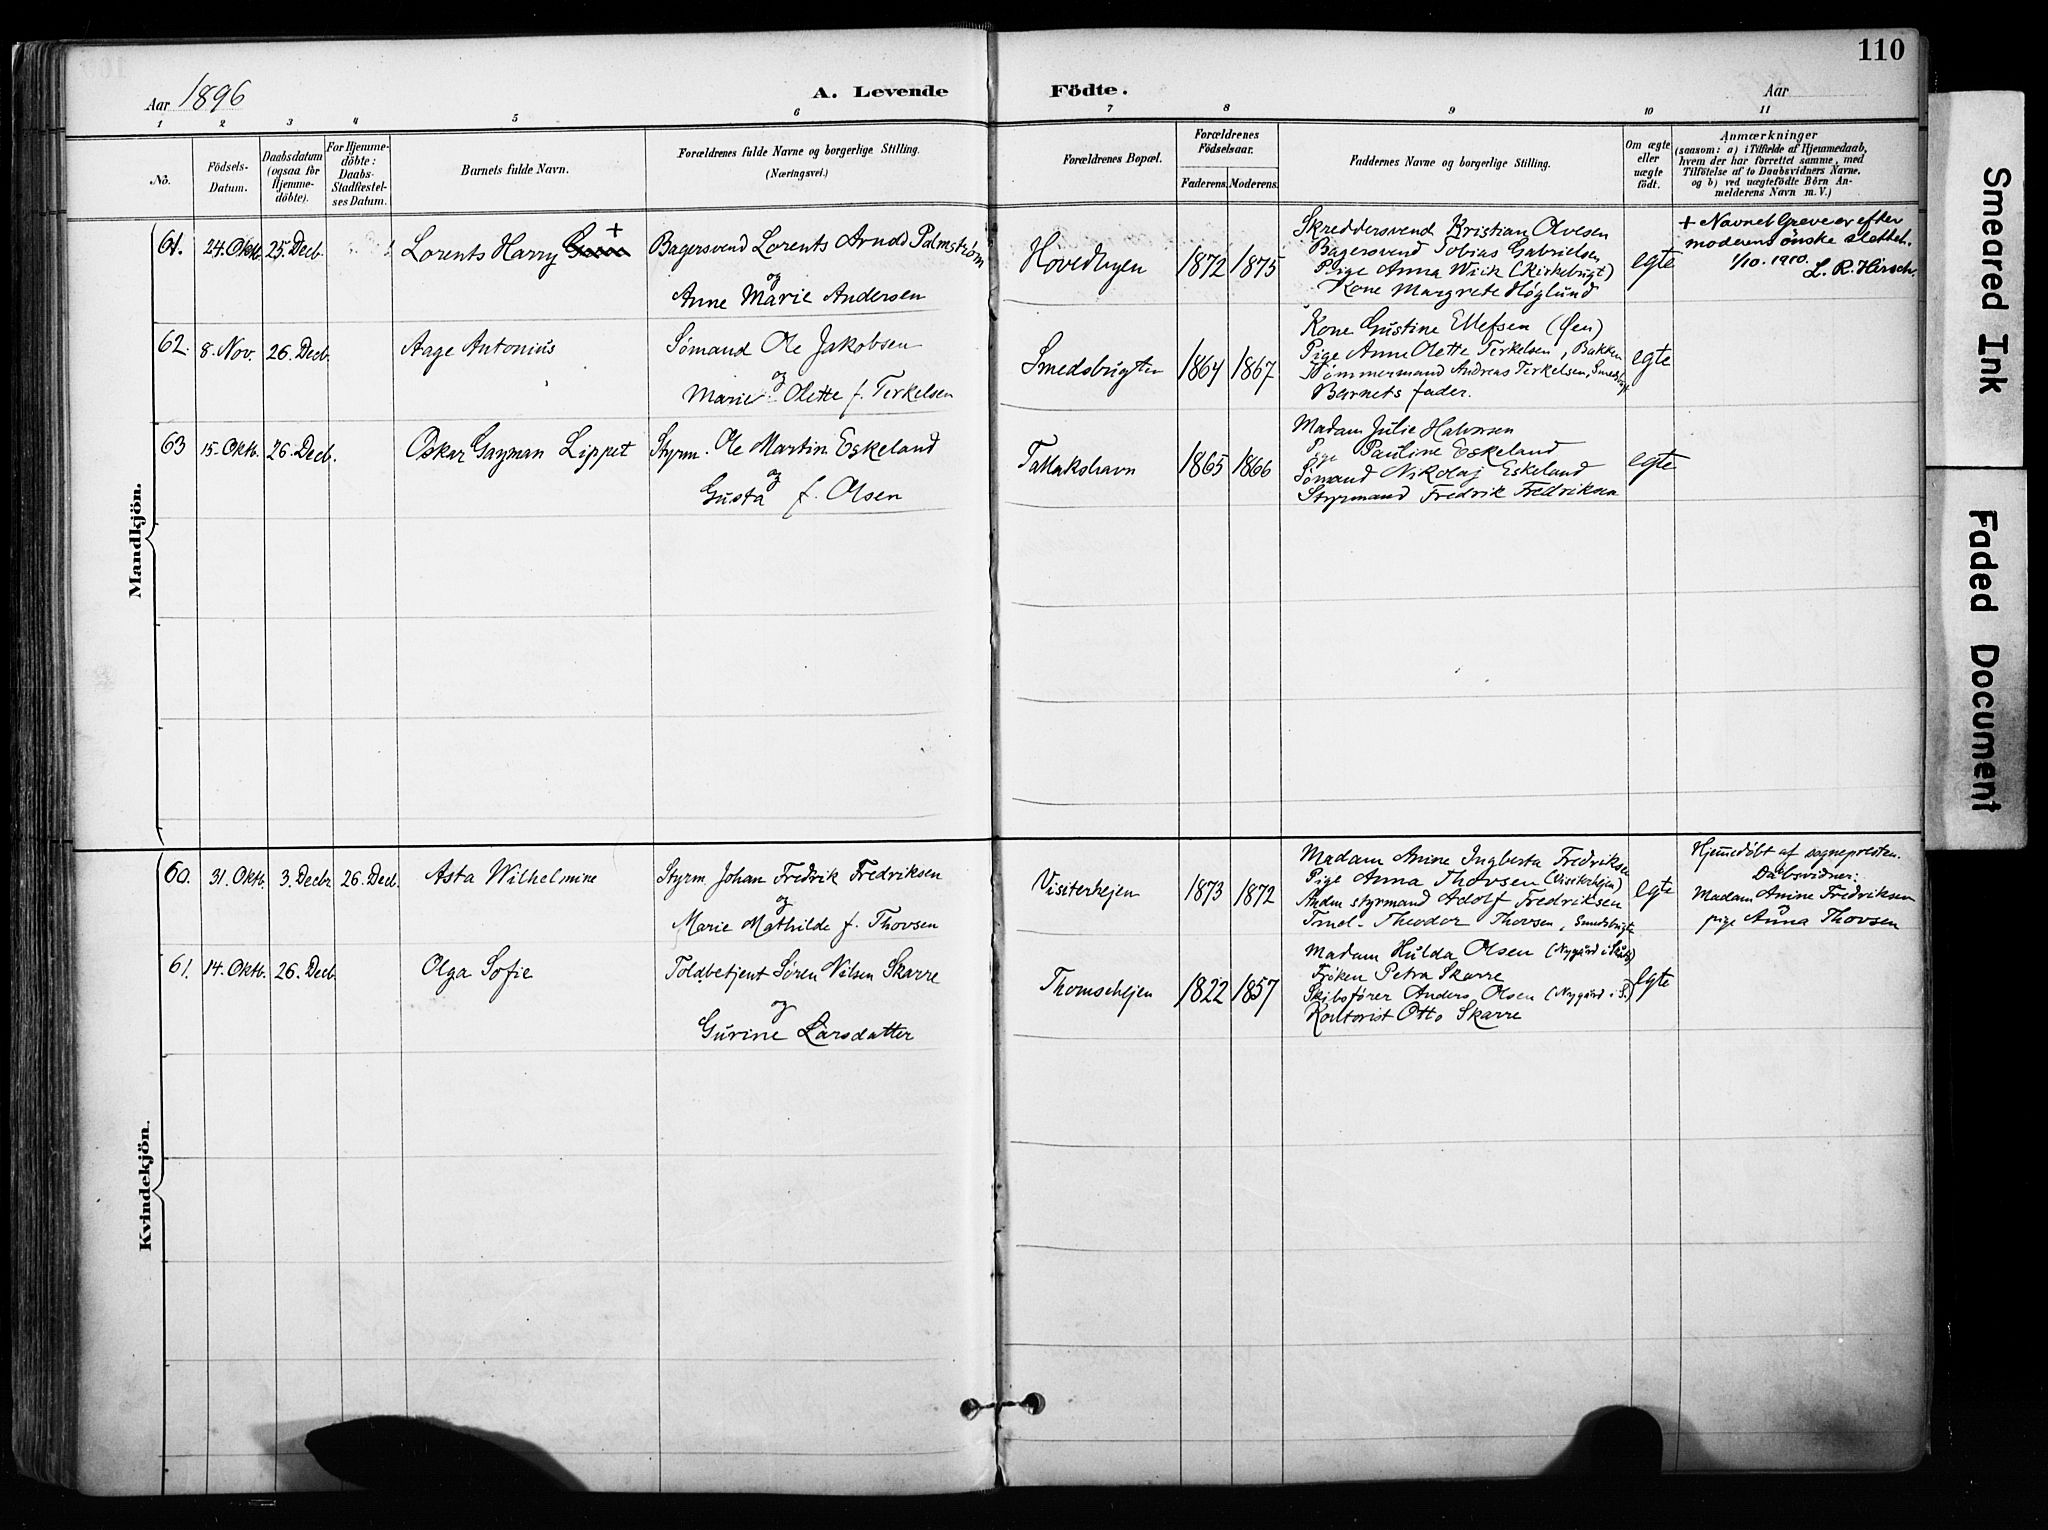 110
Aar 1896
A. Levende
Födte.
Aar
1 2 3 4 5 6 7 8 9 10 11
No.
Födsels-
Datum.
Daabsdatum
(ogsaa for
Hjemme-
döbte).
For Hjemme-
döbte:
Daabs-
Stadfæstel-
ses Datum.
Barnets fulde Navn.
Forældrenes fulde Navne og borgerlige Stilling.
(Næringsvei.)
Forældrenes Bopæl.
Forældrenes
Födselsaar.
Faderens.
Moderens.
Faddernes Navne og borgerlige Stilling.
Om ægte
eller
uægte
födt.
Anmærkninger
(saasom: a) i Tilfælde af Hjemmedaab,
hvem der har forrettet samme, med
Tilföielse af to Daabsvidners Navne,
og b) ved uægtefödte Börn An-
melderens Navn m. V.)
Mandkjön.
61.
24. Oktb.
25. Decb.
Lorents Harry +
Bagersvend Lorents Arndd Palmstrøm
og
Anne Marie Andersen
Hovedbyen
1872
1875
Skreddersvend Kristian Olvesen
Bagersvend Tobias Gabrielsen
Pige Anna Wiik (Kirkebugt)
Kone Margrete Höglund
egte
+ Navnet Greve er efter
moderens önske slettet.
1/10. 1910. L. R. Hirsch.
62.
8. Nov.
26. Decb.
Aage Antonius
Sømand Ole Jakobsen
og
Marie Olette f. Terkelsen
Smedsbugten
1864
1867
Kone Gustine Ellefsen (Øen)
Pige Anne Olette Terkelsen, Bakken
Tømmermand Andreas Terkelsen, Smedsbugt
Barnets fader.
egte
63
15. Oktb.
26. Decb.
Oskar Gayman Lippet
Styrm. Ole Martin Eskeland
og
Gusta f. Olsen
Tallakshavn
1865
1866
Madam Julie Halvorsen
Pige Pauline Eskeland
Sømand Nikolaj Eskeland
Styrmand Fredrik Fredriksen
egte
Kvindekjön.
60.
31. Oktb.
3. Decbr
26. Decb.
Asta Wilhelmine
Styrm Johan Fredrik Fredriksen
og
Marie Mathilde f. Thovsen
Visiterhejen
1873
1872
Madam Anine Ingberta Fredriksen
Pige Anna Thovsen (Visiterhejen)
Anden styrmand Adolf Fredriksen
Theodor Thovsen, Smedsbugten
egte
Hjemedöbt af sognepresten.
Dåbsvidner:
Madam Anine Fredriksen
pige Anna Thovsen
61.
14. Oktb.
26. Decb.
Olga Sofie
Toldbetjent Søren Nilsen Skarre
og
Gurine Larsdatter
Thomsehejen
1822
1857
Madam Hulda Olsen
Frøken Petra Skarre
Skibsfører Anders Olsen (Nygård i S.)
Kontorist Otto Skarre
egte
Smeared Ink
Faded Document